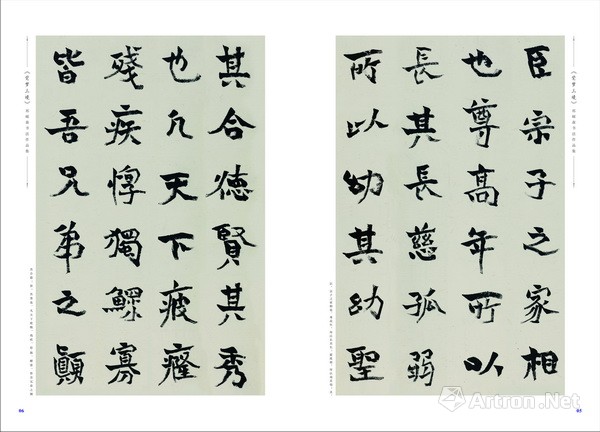 臣宗子之家相
也尊高年所以
長其長慈孤弱
所以幼其幼聖
05
其合德賢其秀
也凡天下疲癃
殘疾惸獨鰥寡
皆吾兄弟之顛
06
Artron.Net